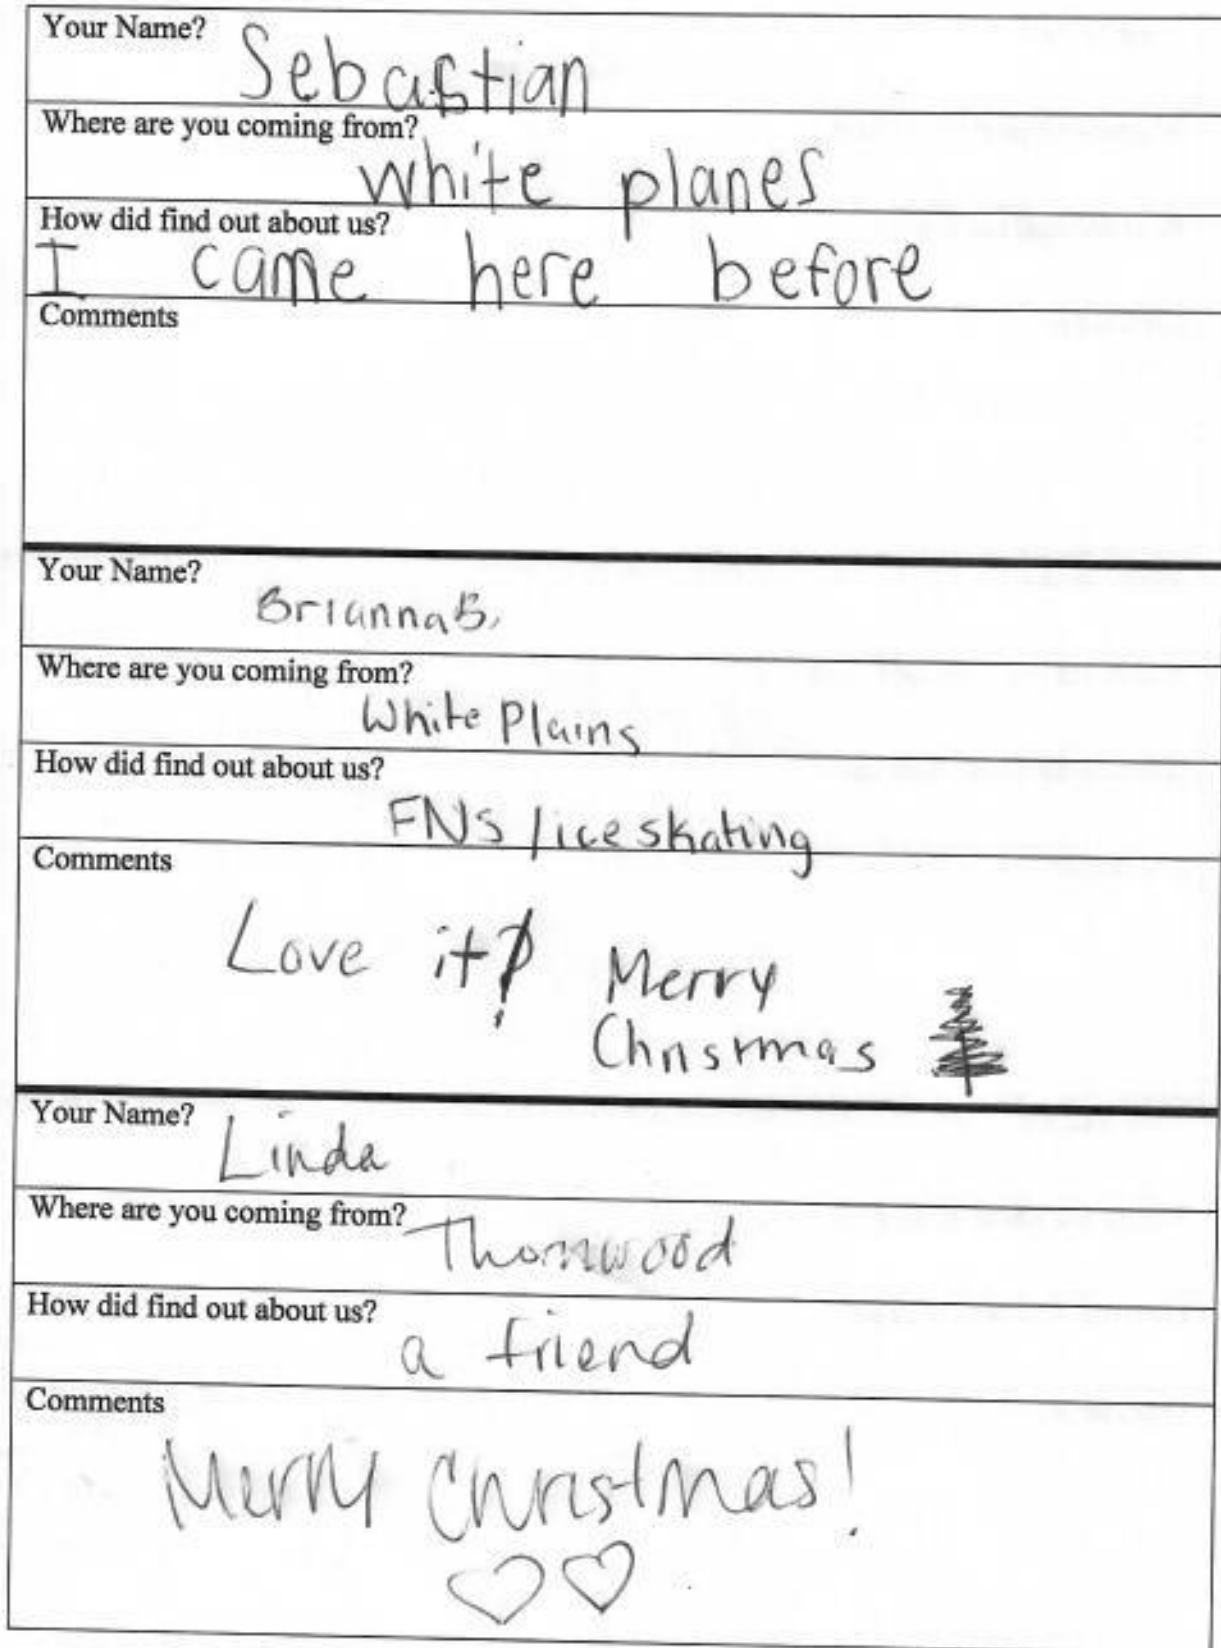 Your Name? Sebastian
Where are you coming from?
white planes
How did find out about us?
I came here before
Comments
Your Name?
Brianna B.
Where are you coming from?
White Plains
How did find out about us?
FNS / ice skating
Comments
Love it! Merry
Christmas
Your Name? Linda
Where are you coming from? Thornwood
How did find out about us?
a friend
Comments
Merry Christmas!